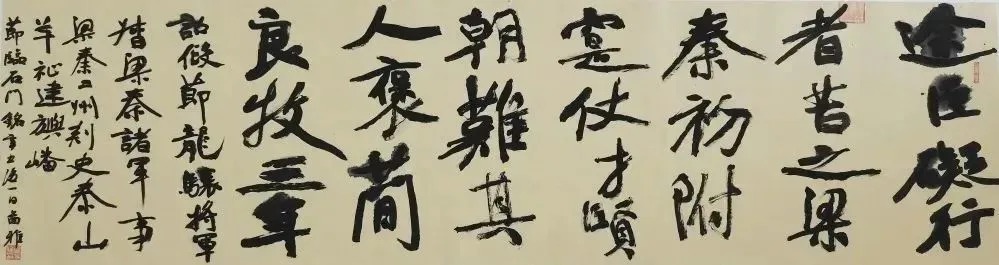 途巨礙行
者苦之梁
秦初附
寔仗才賢
朝難其
人褒簡
良牧三年
詔假節龍驤將軍
督梁秦諸軍事
梁秦二州刺史泰山
羊祉建旟嶓
節臨石門銘